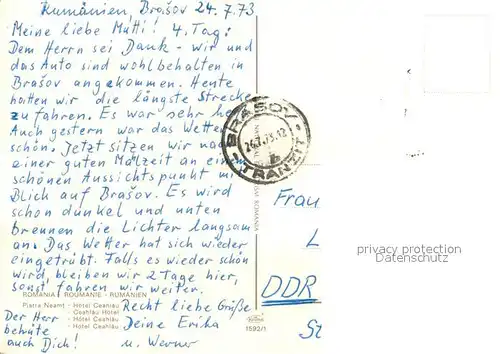 Rumänien, Brašov 24.7.73
Meine liebe Mutti! 4. Tag:
Dem Herrn sei Dank - wir und
das Auto sind wohlbehalten in
Brašov angekommen. Heute
hatten wir die längste Strecke
zu fahren. Es war sehr
Auch gestern war das Wetter
schön. Jetzt sitzen wir nach
einer guten Mahlzeit an einem
schönen Aussichtspunkt mit
Blick auf Brašov. Es wird
schon dunkel und unten
brennen die Lichter langsam
an. Das Wetter hat sich wieder
eingetrübt. Falls es wieder schön
wird, bleiben wir 2 Tage hier,
sonst fahren wir weiter.
ROMANIA - ROUMANIE - RUMÄNIEN
Piatra Neamt - Hotel Ceahlău
- Ceahlău Hotel
- Hôtel Ceahlău
- Hotel Ceahlău
Recht liebe Grüße
Deine Erika
u. Werner
Der Herr
behüte
auch Dich!
1592/1
BRAȘOV
TRANZIT
Frau
L
DDR
St
privacy protection
Datenschutz